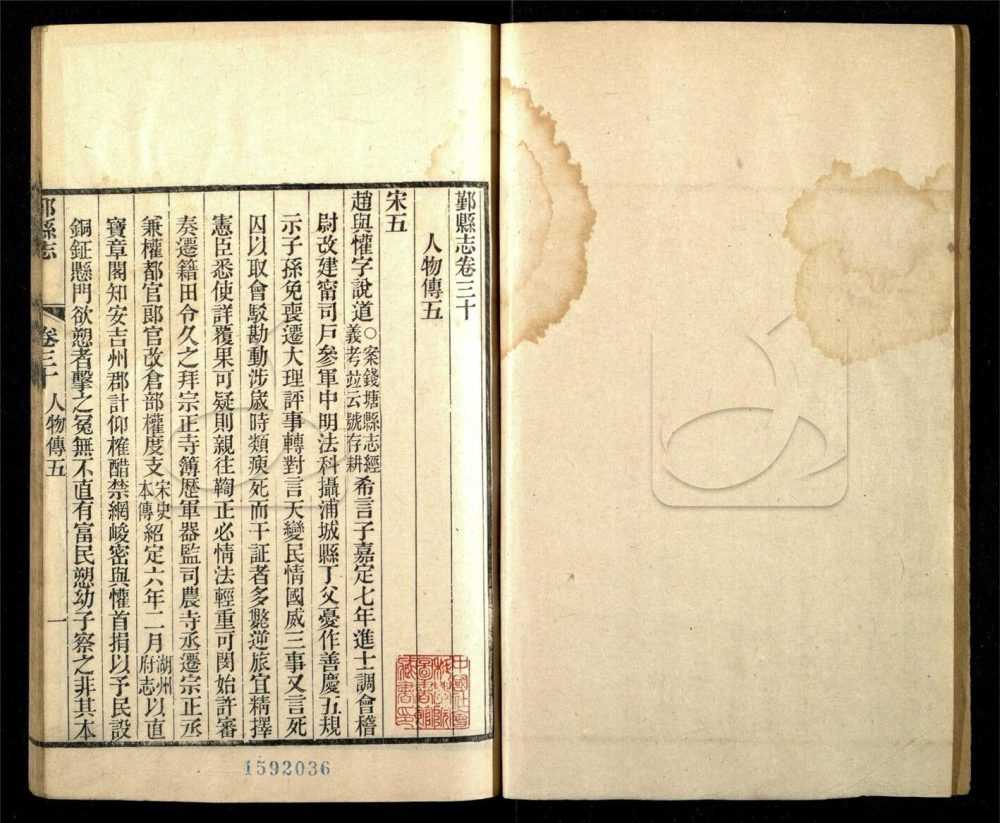 鄞縣志卷三十
人物傳五
宋五
趙與懽字說道○案錢塘縣志經義考竝云號存耕希言子嘉定七年進士調會稽
尉改建甯司戶參軍中明法科攝浦城縣丁父憂作善慶五規
示子孫免喪遷大理評事轉對言天變民情國威三事又言死
囚以取會駁勘動涉歲時類瘐死而干証者多斃逆旅宜精擇
憲臣悉使詳覆果可疑則親往鞫正必情法輕重可閔始許審
奏遷籍田令久之拜宗正寺簿歷軍器監司農寺丞遷宗正丞
兼權都官郎官改倉部權度支宋史本傳紹定六年二月湖州府志以直
寶章閣知安吉州郡計仰榷醋禁網峻密與懽首捐以予民設
銅鉦縣門欲愬者擊之冤無不直有富民愬幼子察之非其本
鄞縣志
卷三十
人物傳五
一
1592036